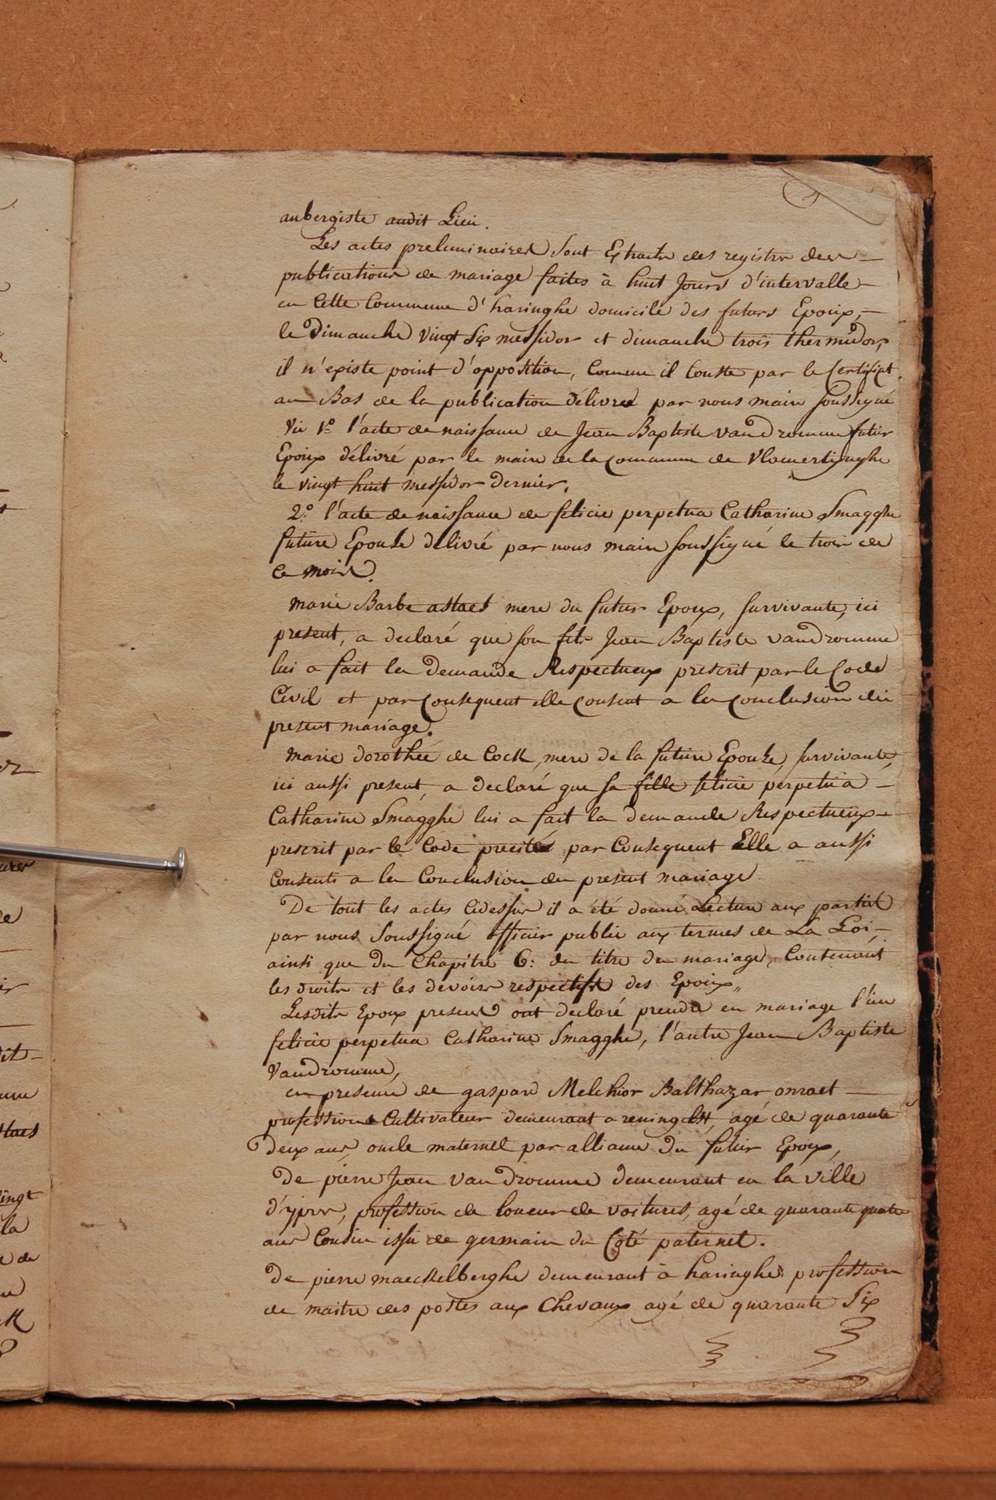 aubergiste audit Lieu.
Les actes preluminaires sont Extraits des registre des
publications de mariage faites à huit Jours d'intervalle
en Cette Commune d'haringhe domicile des futurs Epoux,
le Dimanche vingt Six messidor et dimanche trois thermidor,
il n'existe point d'opposition, Comme il Conste par le Certificat
au Bas de la publication délivré par nous maire soussigné
Vu 1º l'acte de naissance de Jean Baptiste vandromme futur
Epoux délivré par le maire de la Commune de Vlamertynghe
le vingt huit messidor dernier,
2º l'acte de naissance de felicie perpetua Catharine Smagghe
future Epouse délivré par nous maire soussigné le trois de
ce mois.
Marie Barbe astaes mere du futur Epoux, survivante, ici
present, a declaré que son fils Jean Baptiste vandromme
lui a fait la demande Respectueux prescrit par le Code
Civil et par Consequent elle Consent a la Conclusion du
present mariage.
Marie dorothée de Cock, mere de la future Epouse, survivante,
ici aussi present, a declaré que sa fille felicie perpetua
Catharine Smagghe lui a fait la demande Respectueux
prescrit par le Code precité par Consequent Elle a aussi
Consenti a la Conclusion du present mariage
De tout les actes Cidessus il a été donné Lecture aux partis
par nous Soussigné officier public aux termes de La Loi,
ainsi que du Chapitre 6: du titre du mariage, Contenant
les droits et les devoirs respectifs des Epoux,,
Lesdits Epoux present ont declaré prendre en mariage l'un
felicie perpetua Catharine Smagghe, l'autre Jean Baptiste
Vandromme,
en presence de gaspard Melchior Balthazar onraet
profession Cultivateur demeurant a reninghelst, agé de quarante
deux ans oncle maternel par alliance du futur Epoux,
De pierre Jean Vandromme demeurant en la ville
d'ypres, profession de loueur de voitures, agé de quarante quatre
ans Cousin issu de germain du Coté paternel.
De pierre maeckelberghe demeurant à haringhe profession
de maitre des postes aux Chevaux agé de quarante Six